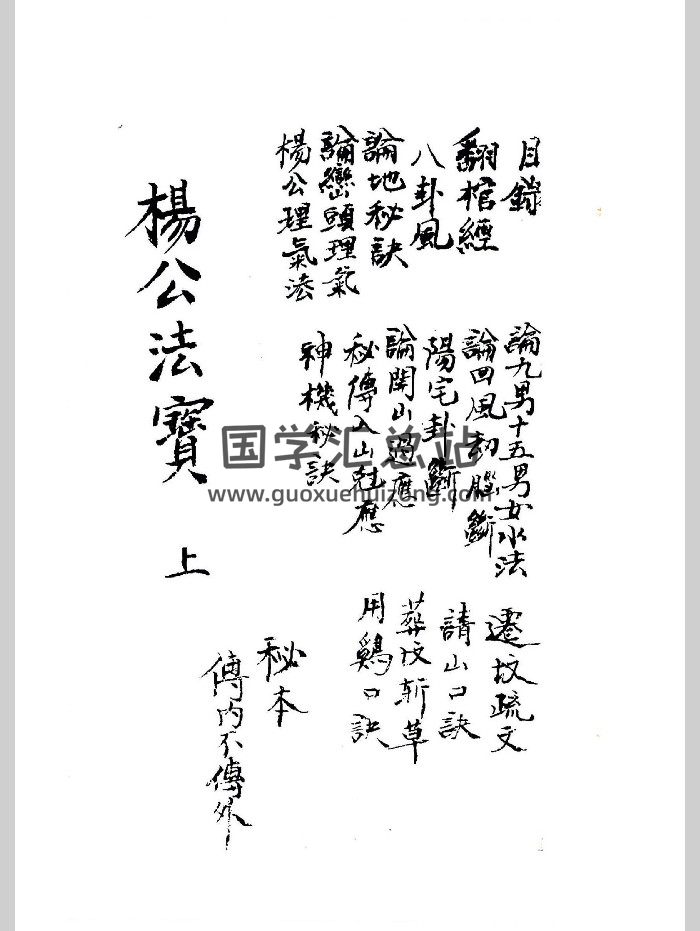 目錄
翻棺經
八卦風
論地秘訣
論巒頭理氣
楊公理氣法
論九男十五男女水法
論四風劫腦斷
陽宅卦斷
論開山過應
秘傳入山尅應
神機秘訣
遷坟疏文
請山口訣
葬坟斬草
用鷄口訣
楊公法寶 上
秘本
傳內不傳外
国学汇总站
www.guoxuehuizong.com